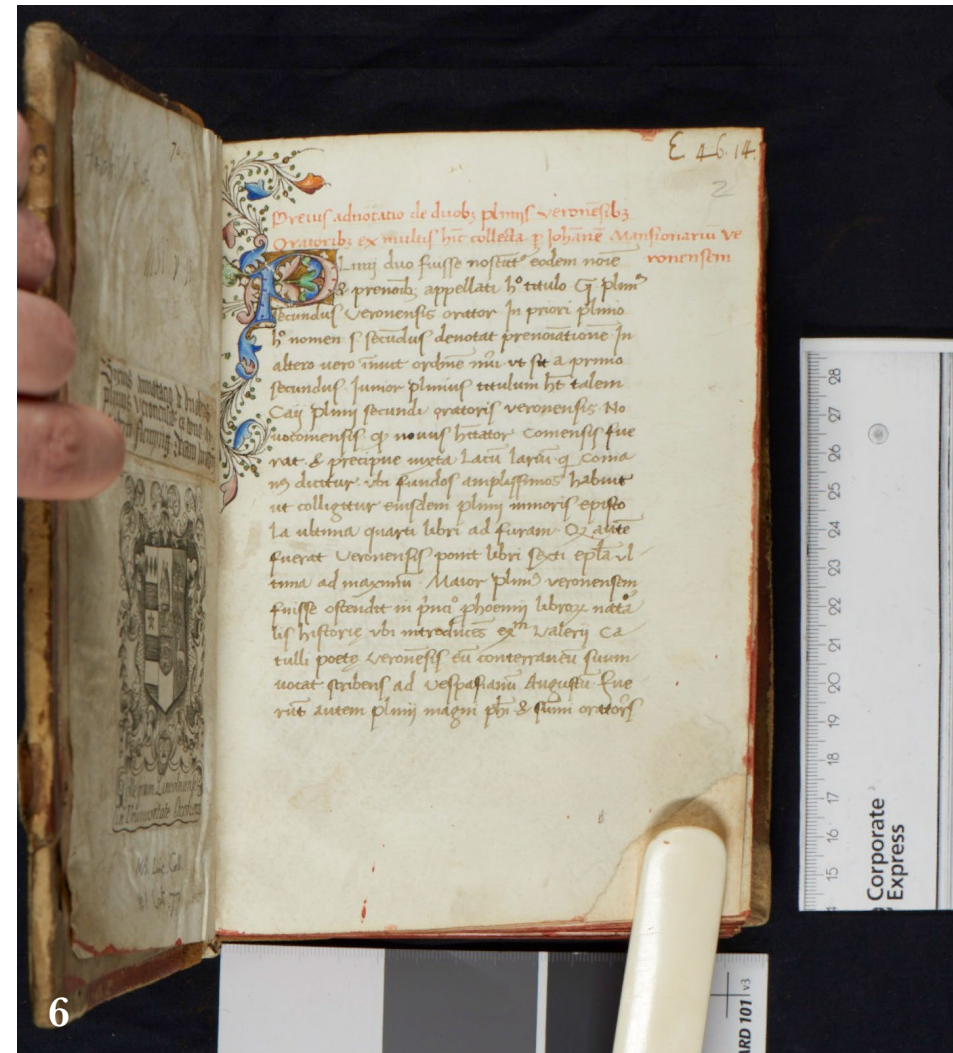 E 46.14.
2
Breuis adnotatio de duobꝫ plinijs veronēsibꝫ
Oratoribꝫ ex multis hīc collecta ꝑ Iohānē Mansionariū Ve
ronensem
PLinij duo fuisse noscūtᵘʳ eodem noīe
& prenoībꝫ appellati hº titulo G. plinꝰ
secundus Veronensis orator In priori plinio
hº nomen s secūdus denotat prenoīationē In
altero vero īnuit ordinē nūi vt sit a primo
secundus. Iunior plinius titulum hēt talem
Caij plinij secundi oratoris veronensis No
uocomensis qꝫ nouus hītator Comensis fue
rat & precipue iuxta Lacū lariū q Coma
nꝰ dicitur vbi fundos amplissimos habuit
ut colligitur eiusdem plinij minoris episto
la ultima quarti libri ad furam. Qꝫ autē
fuerat Veronensis ponit libri sexti epl̄a vl
tima ad maximū. Maior plinꝰ veronensem
fuisse ostendit in prīciº phoemij libroꝝ natᵃ
lis historie vbi introducēs exᵐ Valerij Ca
tulli poetę veronēsis eū conterraneū suum
uocat scribens ad Vespasianū Augustū. Fue
rūt autem plinij magni phī & sūmi oratoʳs
Collegium Lincolniense
in Universitate Oxon
MS. Linc. Coll.
28
27
26
25
24
23
22
21
20
19
18
17
16
15
14
Corporate
Express
ARD 101 v3
6